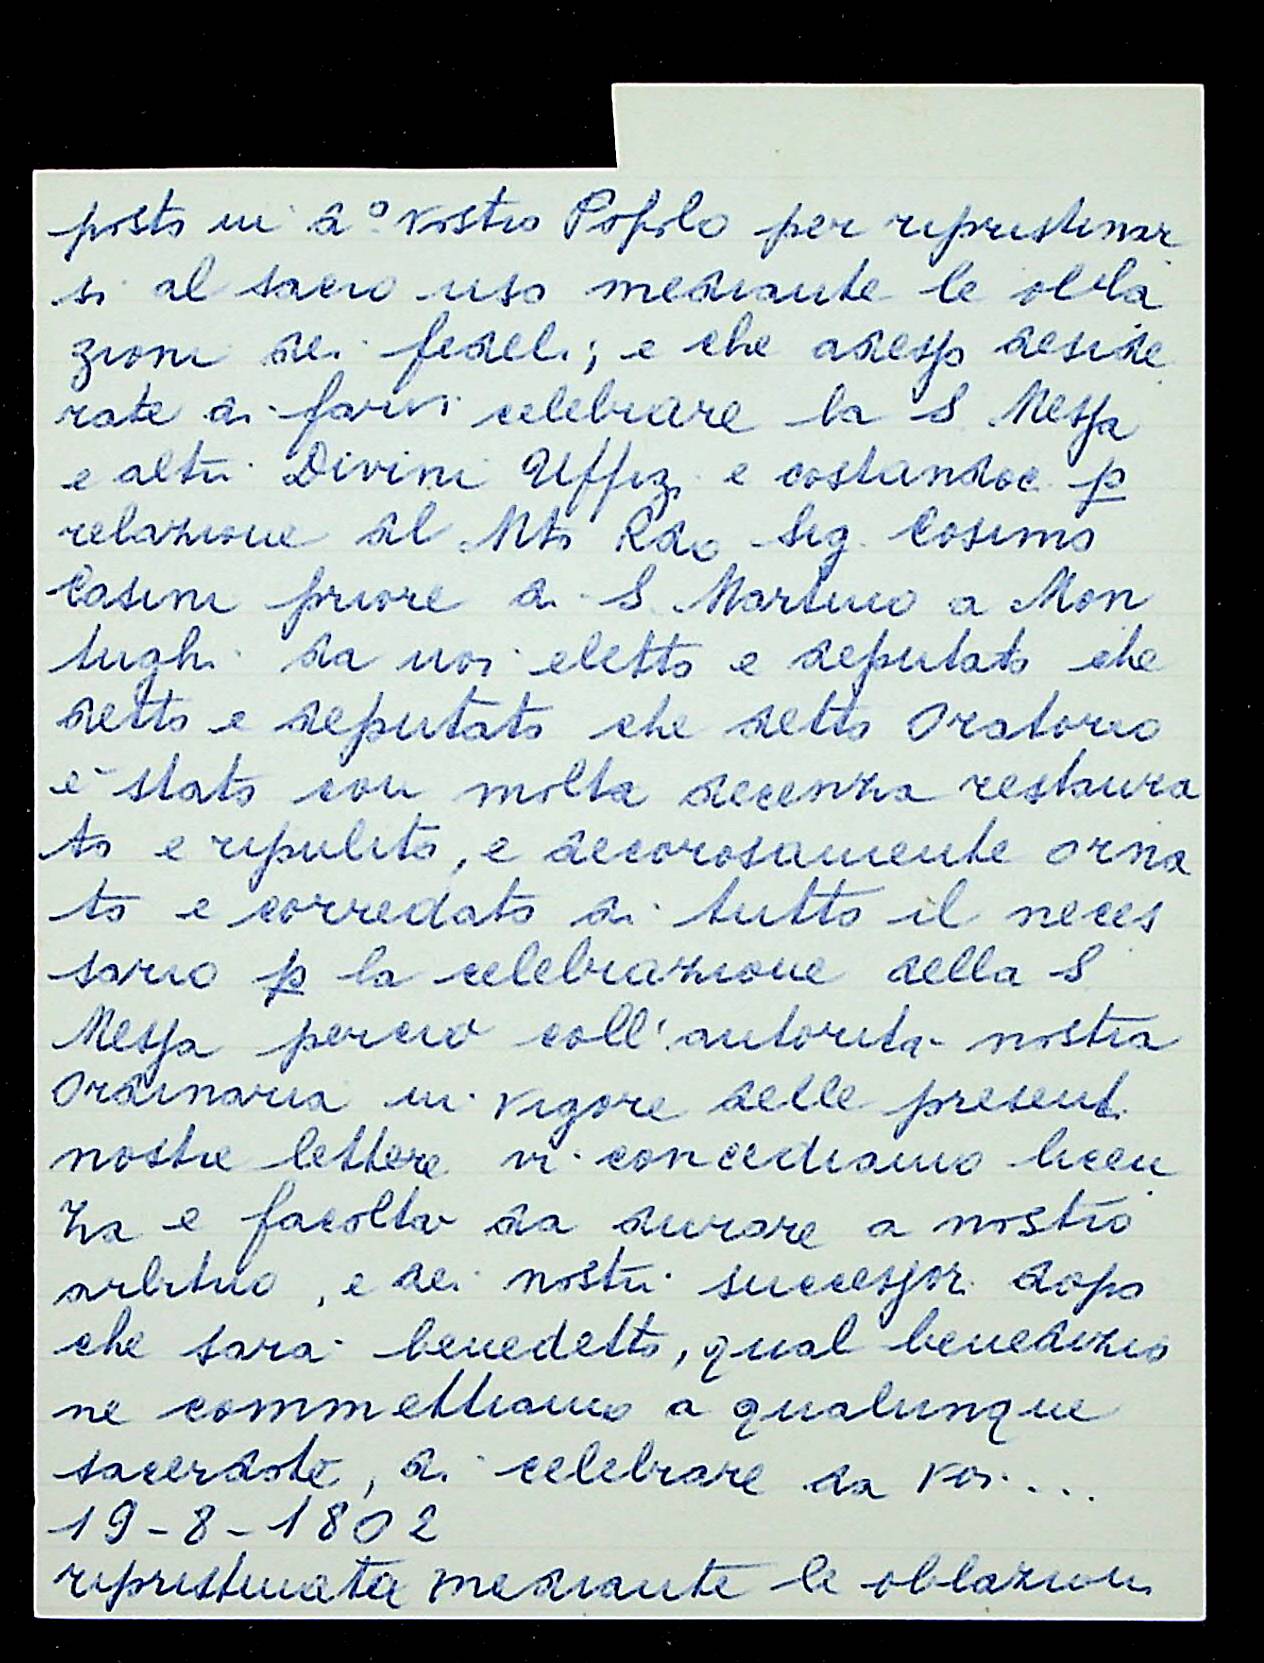 posto in d.º vostro Popolo per ripristinar
si al sacro uso mediante le obla
zioni dei fedeli; e che adesso deside
rate di farvi celebrare la S. Messa
e altri Divini Uffizi e costandoci p
relazione del Mto Rdo Sig. Cosimo
Casini priore di S. Martino a Mon
tughi da noi eletto e deputato che
detto e deputato che detto Oratorio
è stato con molta decenza restaura
to e ripulito, e decorosamente orna
to e corredato di tutto il neces
sario p la celebrazione della S
Messa perciò coll'autorità nostra
Ordinaria in vigore delle presenti
nostre lettere vi concediamo licen
za e facoltà da durare a nostro
arbitrio, e dei nostri successori dopo
che sarà benedetto, qual benedizio
ne commettiamo a qualunque
sacerdote, di celebrare da voi...
19-8-1802
ripristinata mediante le oblazioni